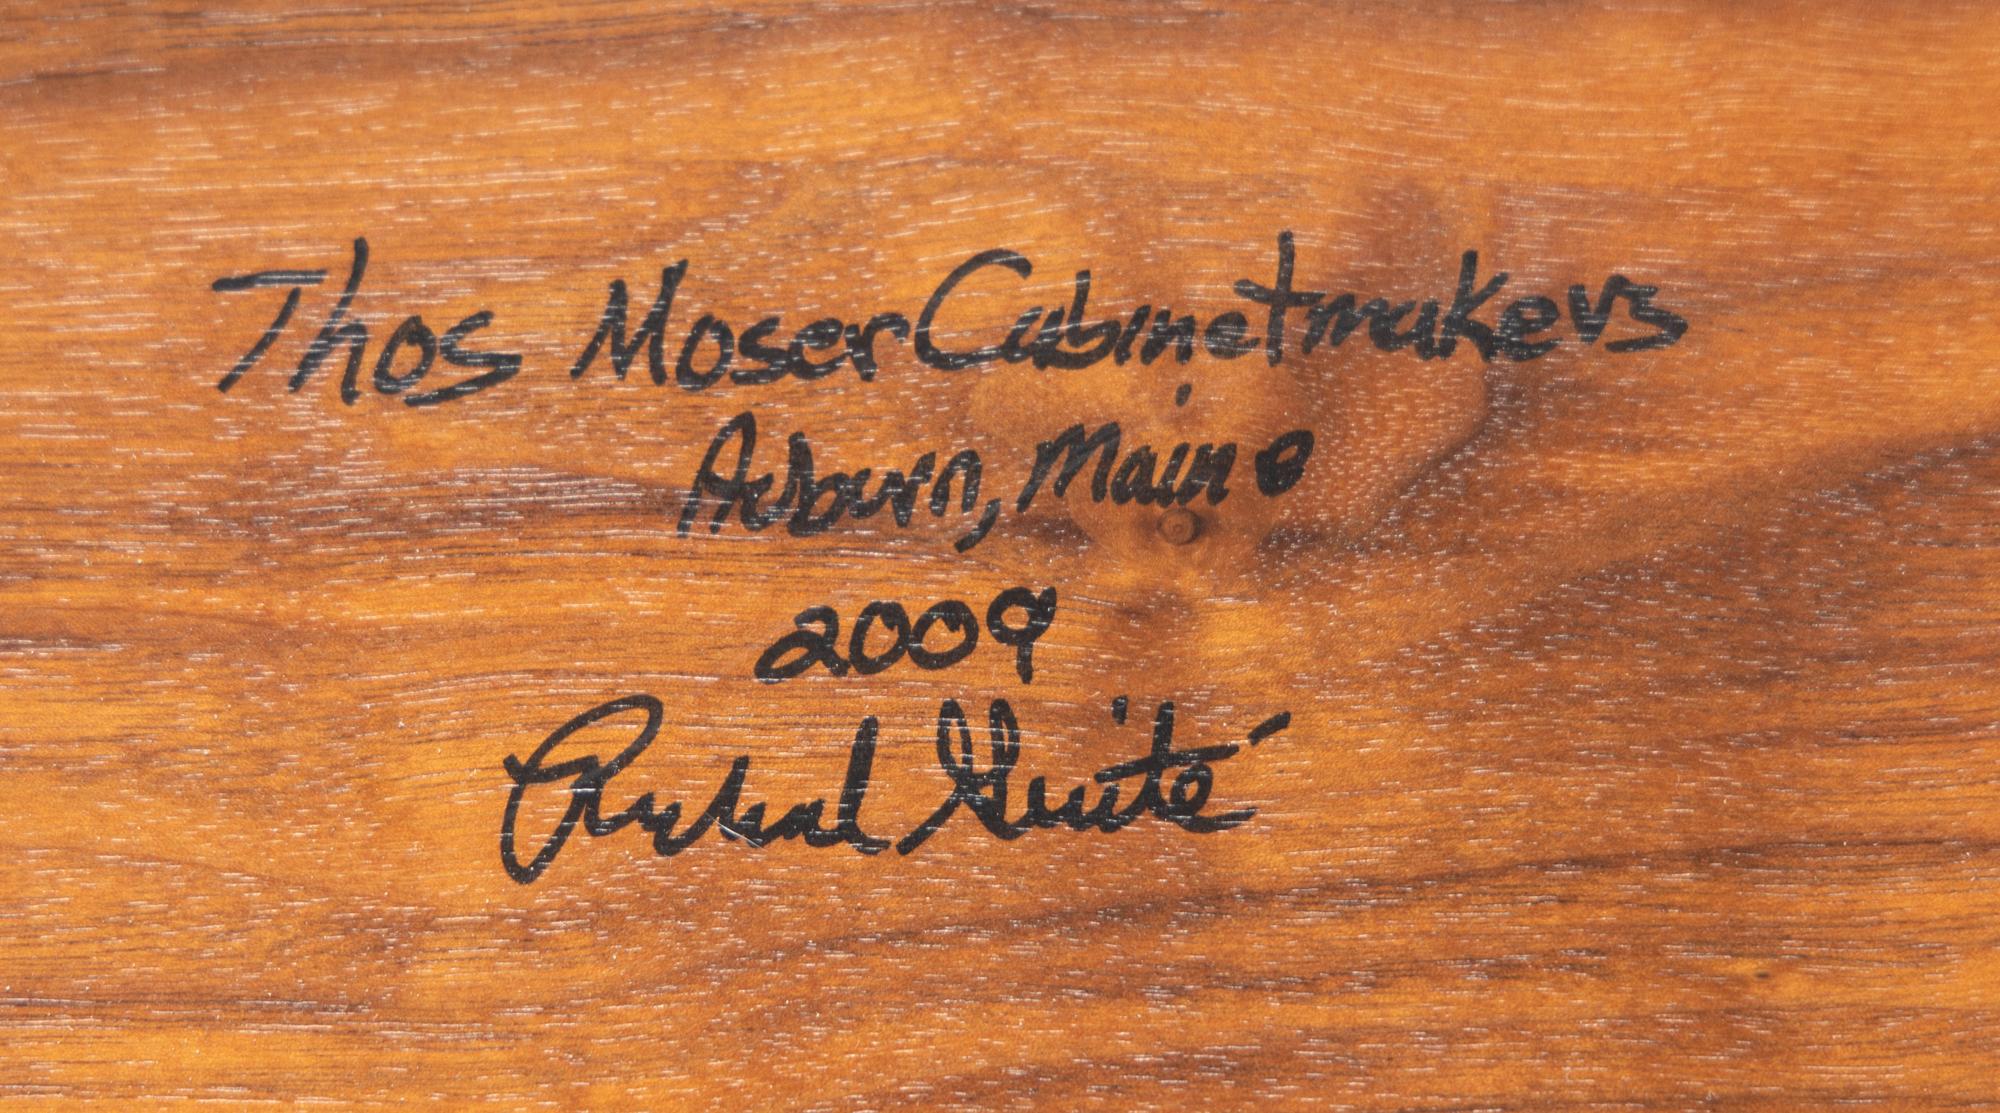 Thos Moser Cabinetmakers
Auburn, Maine
2009
Guité